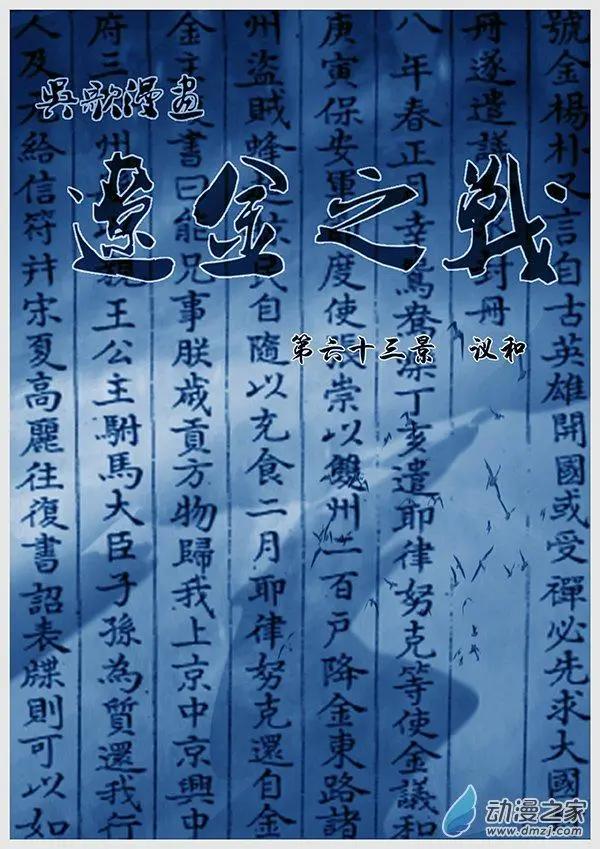 吳歌漫畫
遼金之戰
第六十三景 议和
號金楊朴又言自古英雄開國或受禪必先求大國
冊遂遣議 封冊
八年春正月幸鴛鴦濼丁亥遣耶律努克等使金議和
庚寅保安軍 度使張崇以雙州二百戶降金東路諸
州盜賊蜂 掠民自隨以充食二月耶律努克還自金
金主 書曰能兄事朕歲貢方物歸我上京中京興中
府三 州 親王公主駙馬大臣子孫為質還我行
人及元給信符并宋夏高麗往復書詔表牒則可以如
动漫之家
www.dmzj.com